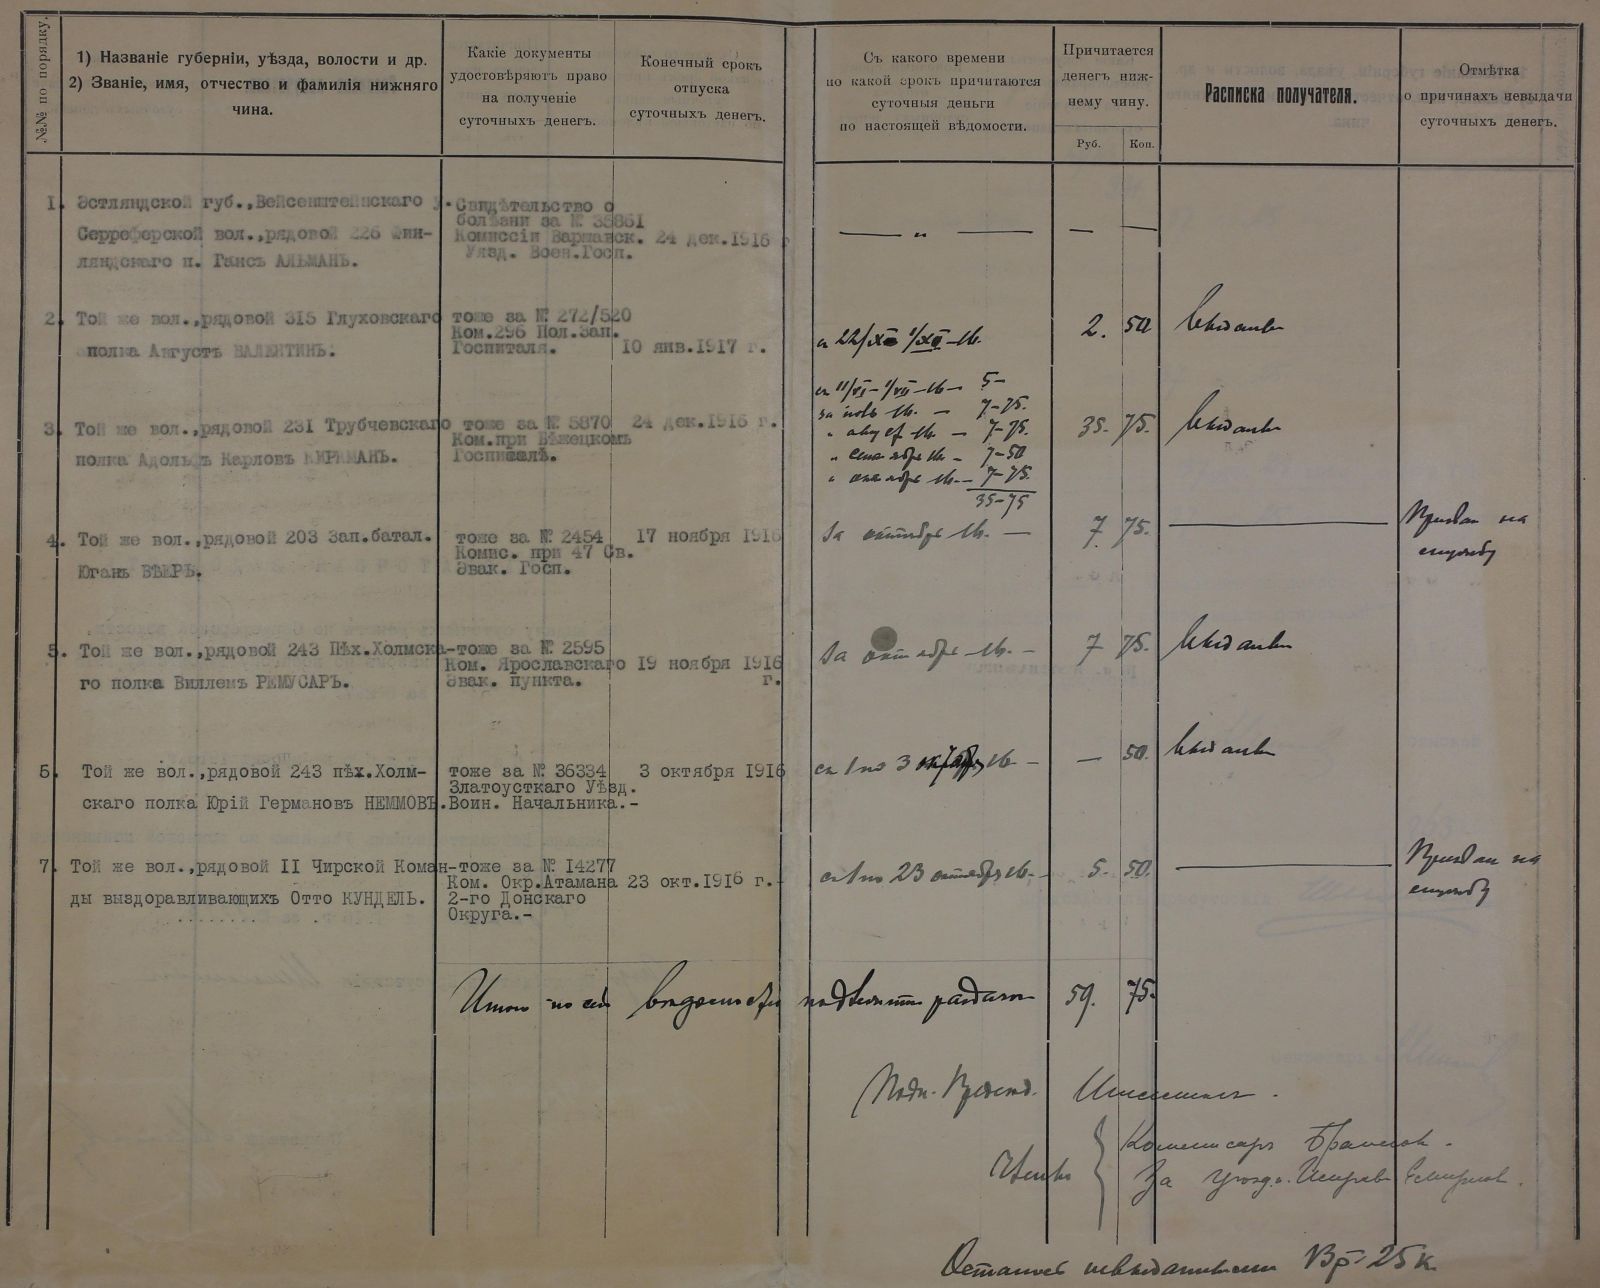 №№ по порядку.
1) Названіе губерніи, уѣзда, волости и др.
2) Званіе, имя, отчество и фамилія нижняго
чина.
Какіе документы
удостовѣряютъ право
на полученіе
суточныхъ денегъ.
Конечный срокъ
отпуска
суточныхъ денегъ.
Съ какого времени
по какой срокъ причитаются
суточныя деньги
по настоящей вѣдомости.
Причитается
денегъ ниж-
нему чину.
Руб. Коп.
Расписка получателя.
Отмѣтка
о причинахъ невыдачи
суточныхъ денегъ.
1. Эстляндской губ.,Вейсенштейнскаго у.
Серреферской вол.,рядовой 226 Фин-
ляндскаго п. Гансъ АЛЬМАНЪ.
Свидѣтельство о
болѣзни за № 35861
Комиссіи Варшавск.
Уѣзд. Воен.Госп.
24 дек.1916 г
— " — — —
2. Той же вол.,рядовой 315 Глуховскаго
полка Августъ ВАЛЕНТИНЪ.
тоже за № 272/520
Ком.296 Пол.Зап.
Госпиталя.
10 янв.1917 г.
2. 50
выданы
3. Той же вол.,рядовой 231 Трубчевскаго
полка Адольфъ Карловъ КИРКМАНЪ.
тоже за № 5870
Ком.при Бѣжецкомъ
Госпиталѣ.
24 дек.1916 г.
с 11/VI – 1/VII – 16 – 5 –
за іюль 16. – 7–75.
" авгус 16. – 7–75.
" сентябрь 16. – 7–50
" октябрь 16. – 7–75.
35–75
35. 75.
выданы
4. Той же вол.,рядовой 203 Зап.батал.
Юганъ ВѢЕРЪ.
тоже за № 2454
Комис. при 47 Св.
Эвак. Госп.
17 ноября 1916
За октябрь 16. —
7 75.
Призван на
службу
5. Той же вол.,рядовой 243 Пѣх.Холмска-
го полка Виллемъ РЕМУСАРЪ.
тоже за № 2595
Ком. Ярославскаго
Эвак. пункта.
19 ноября 1916
г.
За октябрь 16. –
7 75.
выданы
6. Той же вол.,рядовой 243 пѣх.Холм-
скаго полка Юрій Германовъ НЕММОВЪ.
тоже за № 36334
Златоусткаго Уѣзд.
Воин. Начальника.-
3 октября 1916
с 1 по 3 октября 16 –
— 50.
выданы
7. Той же вол.,рядовой II Чирской Коман-
ды выздоравливающихъ Отто КУНДЕЛЬ.
тоже за № 14277
Ком. Окр.Атамана
2-го Донскаго
Округа.-
23 окт.1916 г.-
с 1 по 23 октября 16. –
5. 50.
Призван на
службу
Итого по сей вѣдомости подлежит раздачѣ 59. 75.
Подп. Предсѣд.
Члены
Комиссаръ
За уѣздн. Исправ. Смирнов.
Осталось невыданными 13 р – 25 к